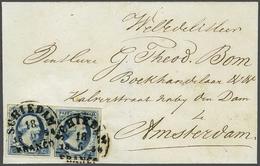 WelEdelenHeer
G. Theod. Bom
Boekhandelaar
Kalverstraat naby den Dam
te
Amsterdam.
SCHIEDAM
18
FRANCO
SCHIEDAM
18
FRANCO